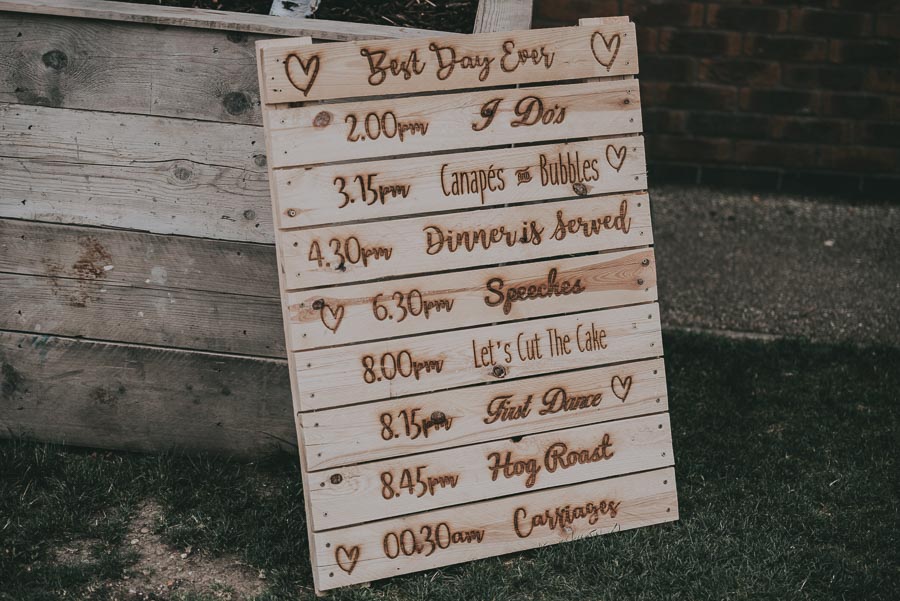 Best Day Ever
2.00pm I Do's
3.15pm Canapés and Bubbles
4.30pm Dinner is Served
6.30pm Speeches
8.00pm Let's Cut The Cake
8.15pm First Dance
8.45pm Hog Roast
00.30am Carriages